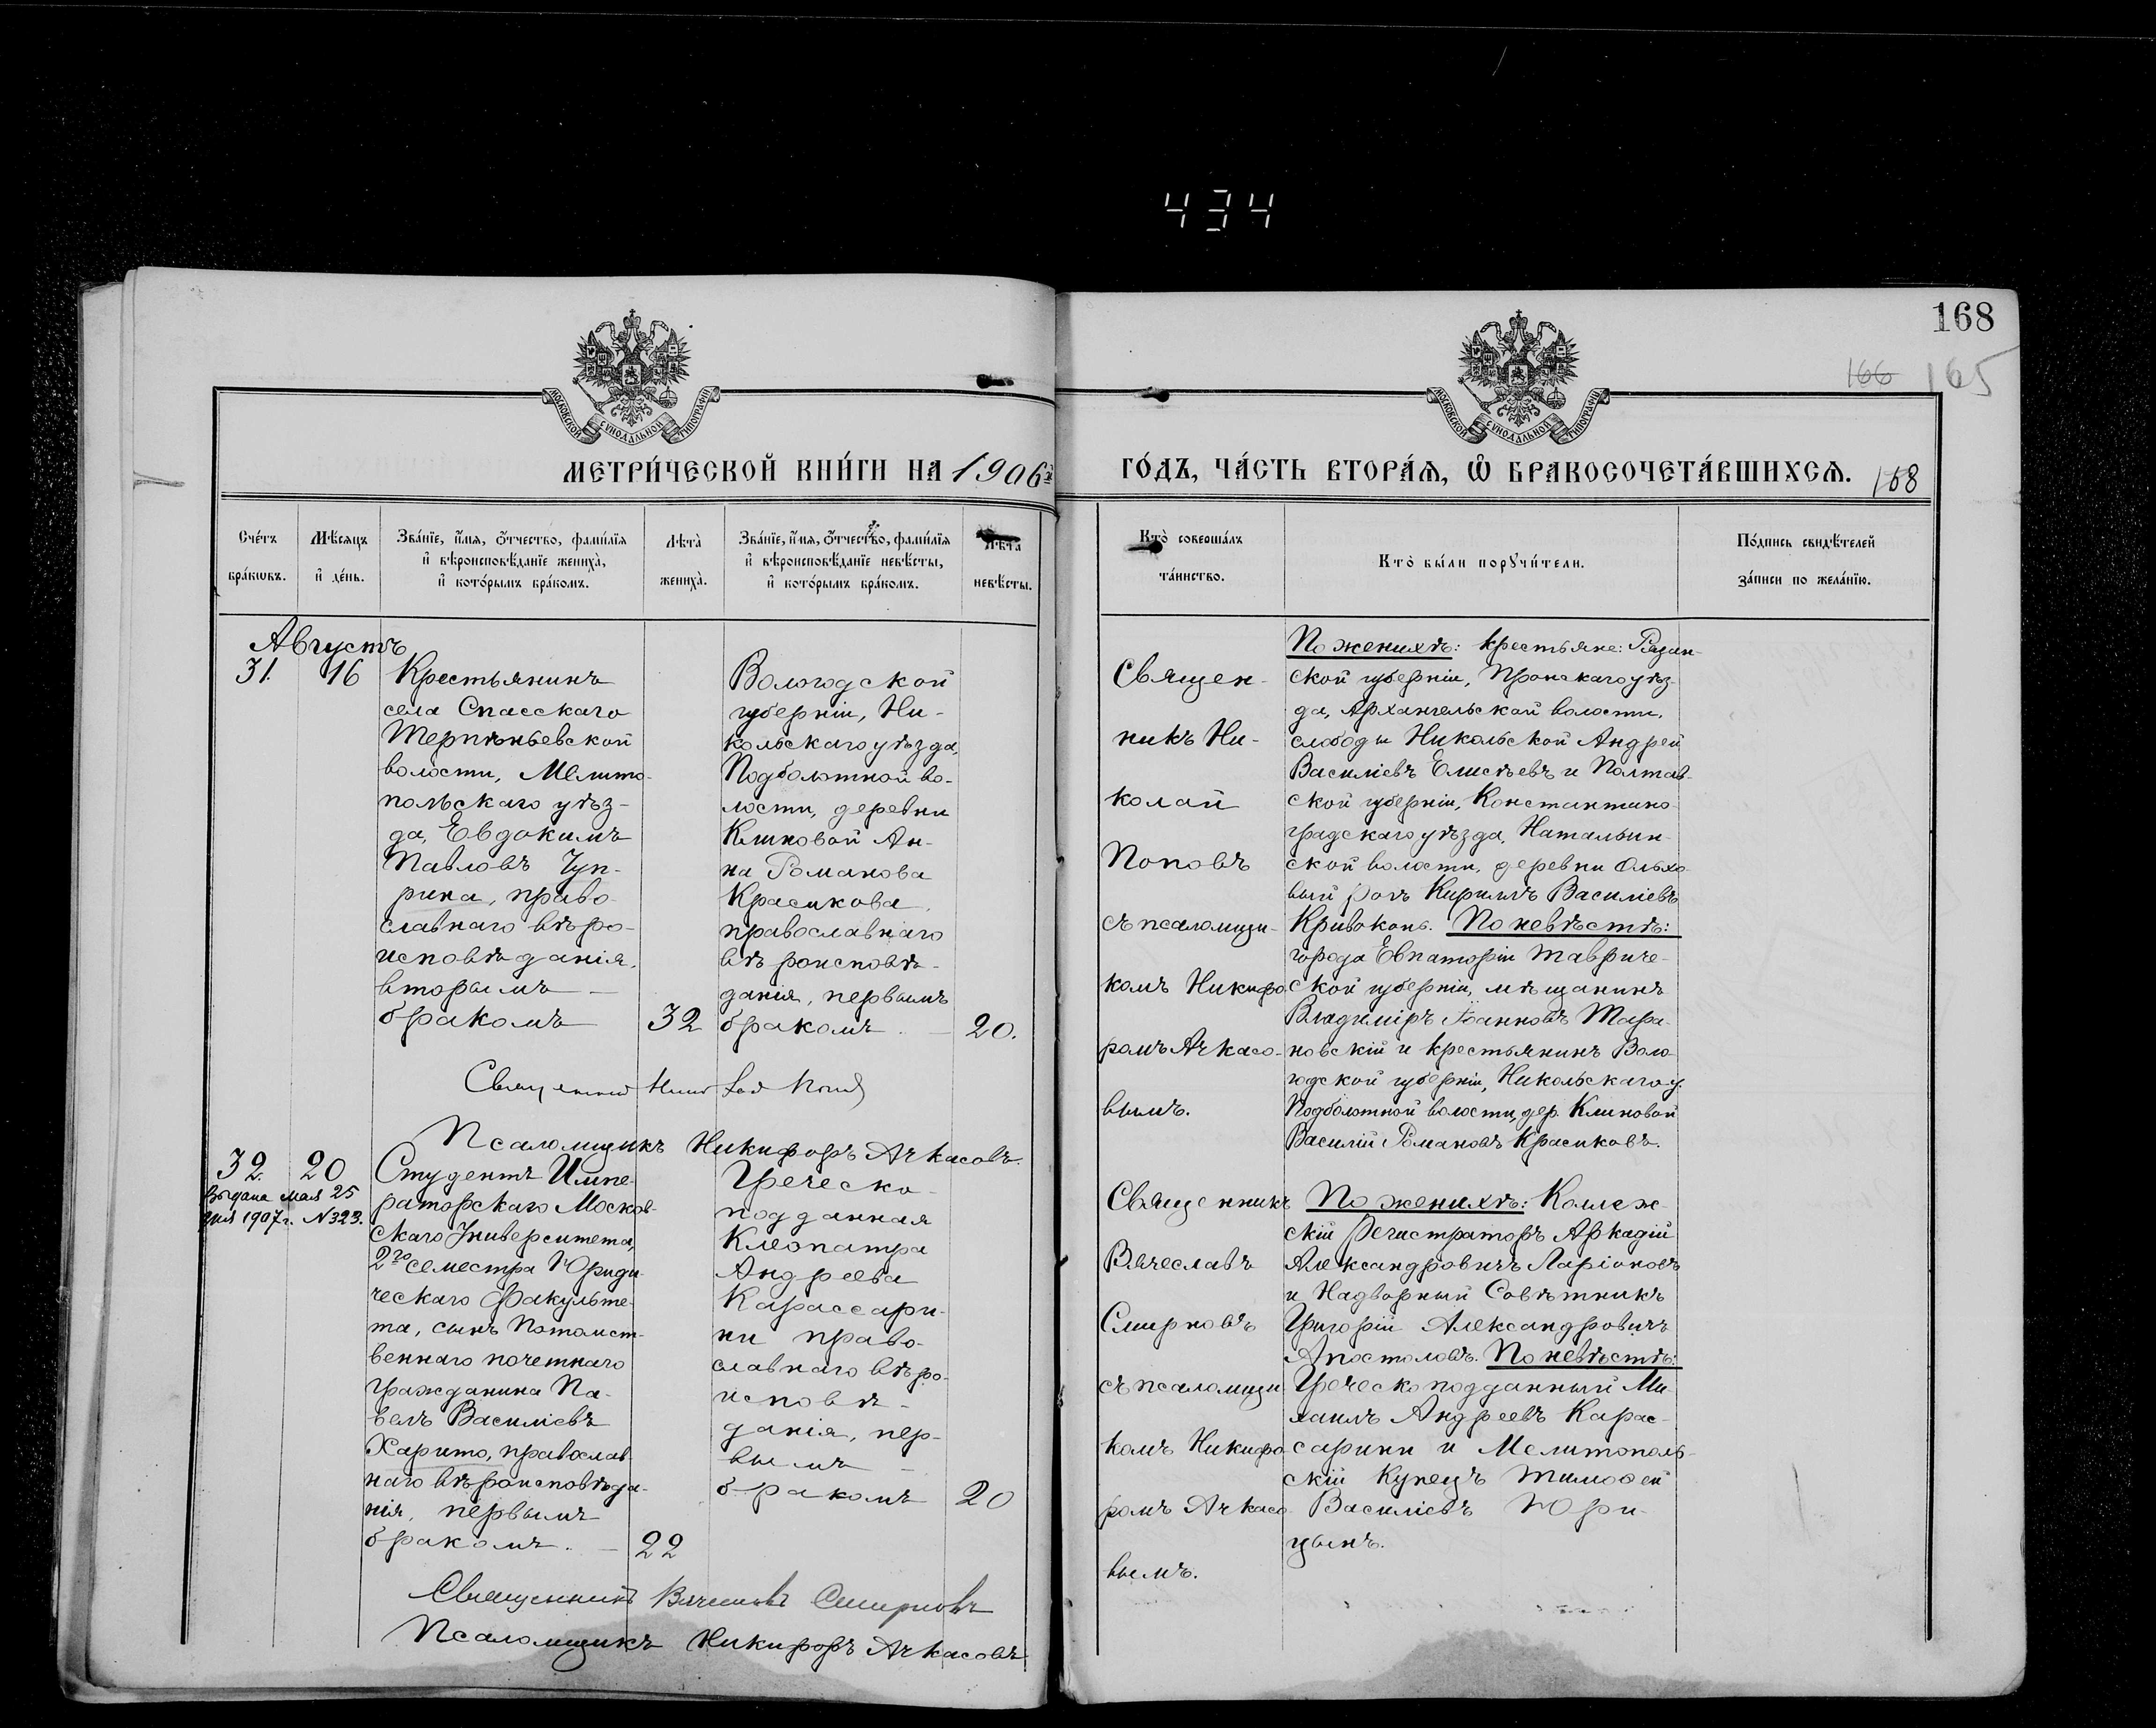 434
168
166 165
МОСКОВСКОЙ СѴНОДАЛЬНОЙ ТИПОГРАФІИ
МОСКОВСКОЙ СѴНОДАЛЬНОЙ ТИПОГРАФІИ
МЕТРИ́ЧЕСКОЙ КНИ́ГИ НА 1906й
ГО́ДЪ, ЧА́СТЬ ВТОРА́Ѧ, Ѡ БРАКОСОЧЕТА́ВШИХСѦ. 168
Сче́тъ бра́кѡвъ.
Мѣ́сяцъ и҆ де́нь.
Зва́нїе, и҆́мя, ѻ҆́тчество, фами́лїя
и҆ вѣроисповѣ́данїе жениха̀,
и҆ кото́рымъ бра́комъ.
Лѣта̀ жениха̀.
Зва́нїе, и҆́мя, ѻ҆́тчество, фами́лїя
и҆ вѣроисповѣ́данїе невѣ́сты,
и҆ кото́рымъ бра́комъ.
Лѣта̀ невѣ́сты.
Кто̀ соверша́лъ та́инство.
Кто̀ бы́ли порꙋчи́тели.
По́дпись свидѣ́телей
за́писи по жела́нїю.
Августъ
31. 16
Крестьянинъ
села Спасскаго
Терпѣньевской
волости, Мелито-
польскаго уѣз-
да, Евдокимъ
Павловъ Чуп-
рина, право-
славнаго вѣро-
исповѣданія,
вторымъ
бракомъ 32
Вологодской
губерніи, Ни-
кольскаго уѣзда,
Подболотной во-
лости, деревни
Климовой Ан-
на Романова
Красикова,
православнаго
вѣроисповѣ-
данія, первымъ
бракомъ. 20.
Священ-
никъ Ни-
колай
Поповъ
съ псаломщи-
комъ Никифо-
ромъ Ачкасо-
вымъ.
По женихѣ: крестьяне: Рязан-
ской губерніи, Пронскаго уѣз-
да, Архангельской волости,
слободы Никольской Андрей
Василіевъ Елисѣевъ и Полтав-
ской губерніи, Константино-
градскаго уѣзда, Натальин-
ской волости, деревни Ольхо-
вый рогъ Кириллъ Василіевъ
Кривоконь. По невѣстѣ:
города Евпаторіи Тавриче-
ской губерніи, мѣщанинъ
Владиміръ Іоанновъ Тара-
новскій и крестьянинъ Воло-
годской губерніи, Никольскаго у.
Подболотной волости, дер. Климовой
Василій Романовъ Красиковъ.
Священникъ Николай Поповъ
Псаломщикъ Никифоръ Ачкасовъ.
32. 20
Выдана мая 25
дня 1907 г. №323.
Студентъ Импе-
раторскаго Москов-
скаго Университета,
2го семестра Юриди-
ческаго факульте-
та, сынъ Потомст-
веннаго почетнаго
Гражданина Па-
велъ Василіевъ
Харито, православ-
наго вѣроисповѣда-
нія, первымъ
бракомъ. 22
Греческо-
подданная
Клеопатра
Андреева
Карассари-
ни право-
славнаго вѣро-
исповѣ-
данія, пер-
вымъ
бракомъ 20
Священникъ
Вячеславъ
Смирновъ
съ псаломщи-
комъ Никифо-
ромъ Ачкасо-
вымъ.
По женихѣ: Коллеж-
скій Регистраторъ Аркадій
Александровичъ Ларіоновъ
и Надворный Совѣтникъ
Григорій Александровичъ
Апостоловъ. По невѣстѣ:
Греческоподданный Ми-
хаилъ Андреевъ Карас-
сарини и Мелитополь-
скій Купецъ Тимоѳей
Василіевъ Юри-
цынъ.
Священникъ Вячеславъ Смирновъ
Псаломщикъ Никифоръ Ачкасовъ